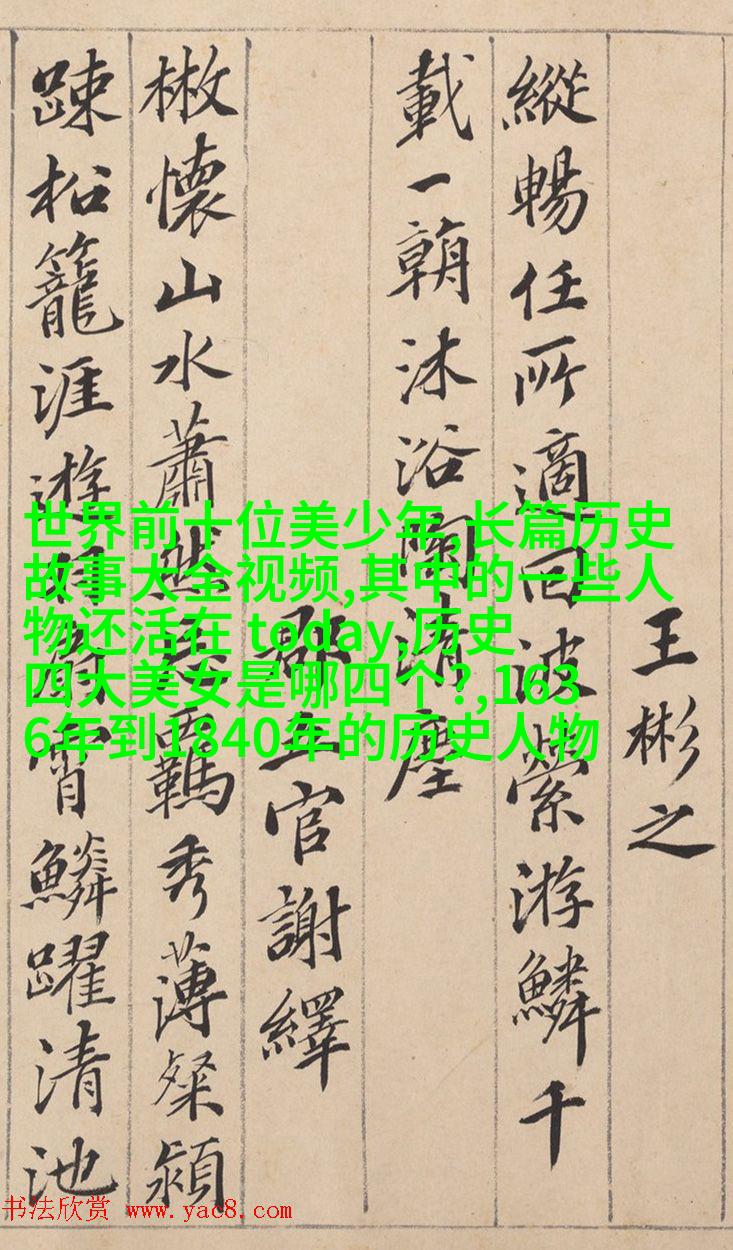 王彬之
縱暢任所適回波縈游鱗千
載一朝沐浴陶清塵
郡五官謝繹
散懷山水蕭然忘羈秀薄粲穎
疎松籠涯遊羽扇霄鱗躍清池
世界前十位美少年,长篇历史
故事大全视频,其中的一些人
物还活在 today,历史
四大美女是哪四个?,163
6年到1840年的历史人物
书法欣赏 www.yac8.com